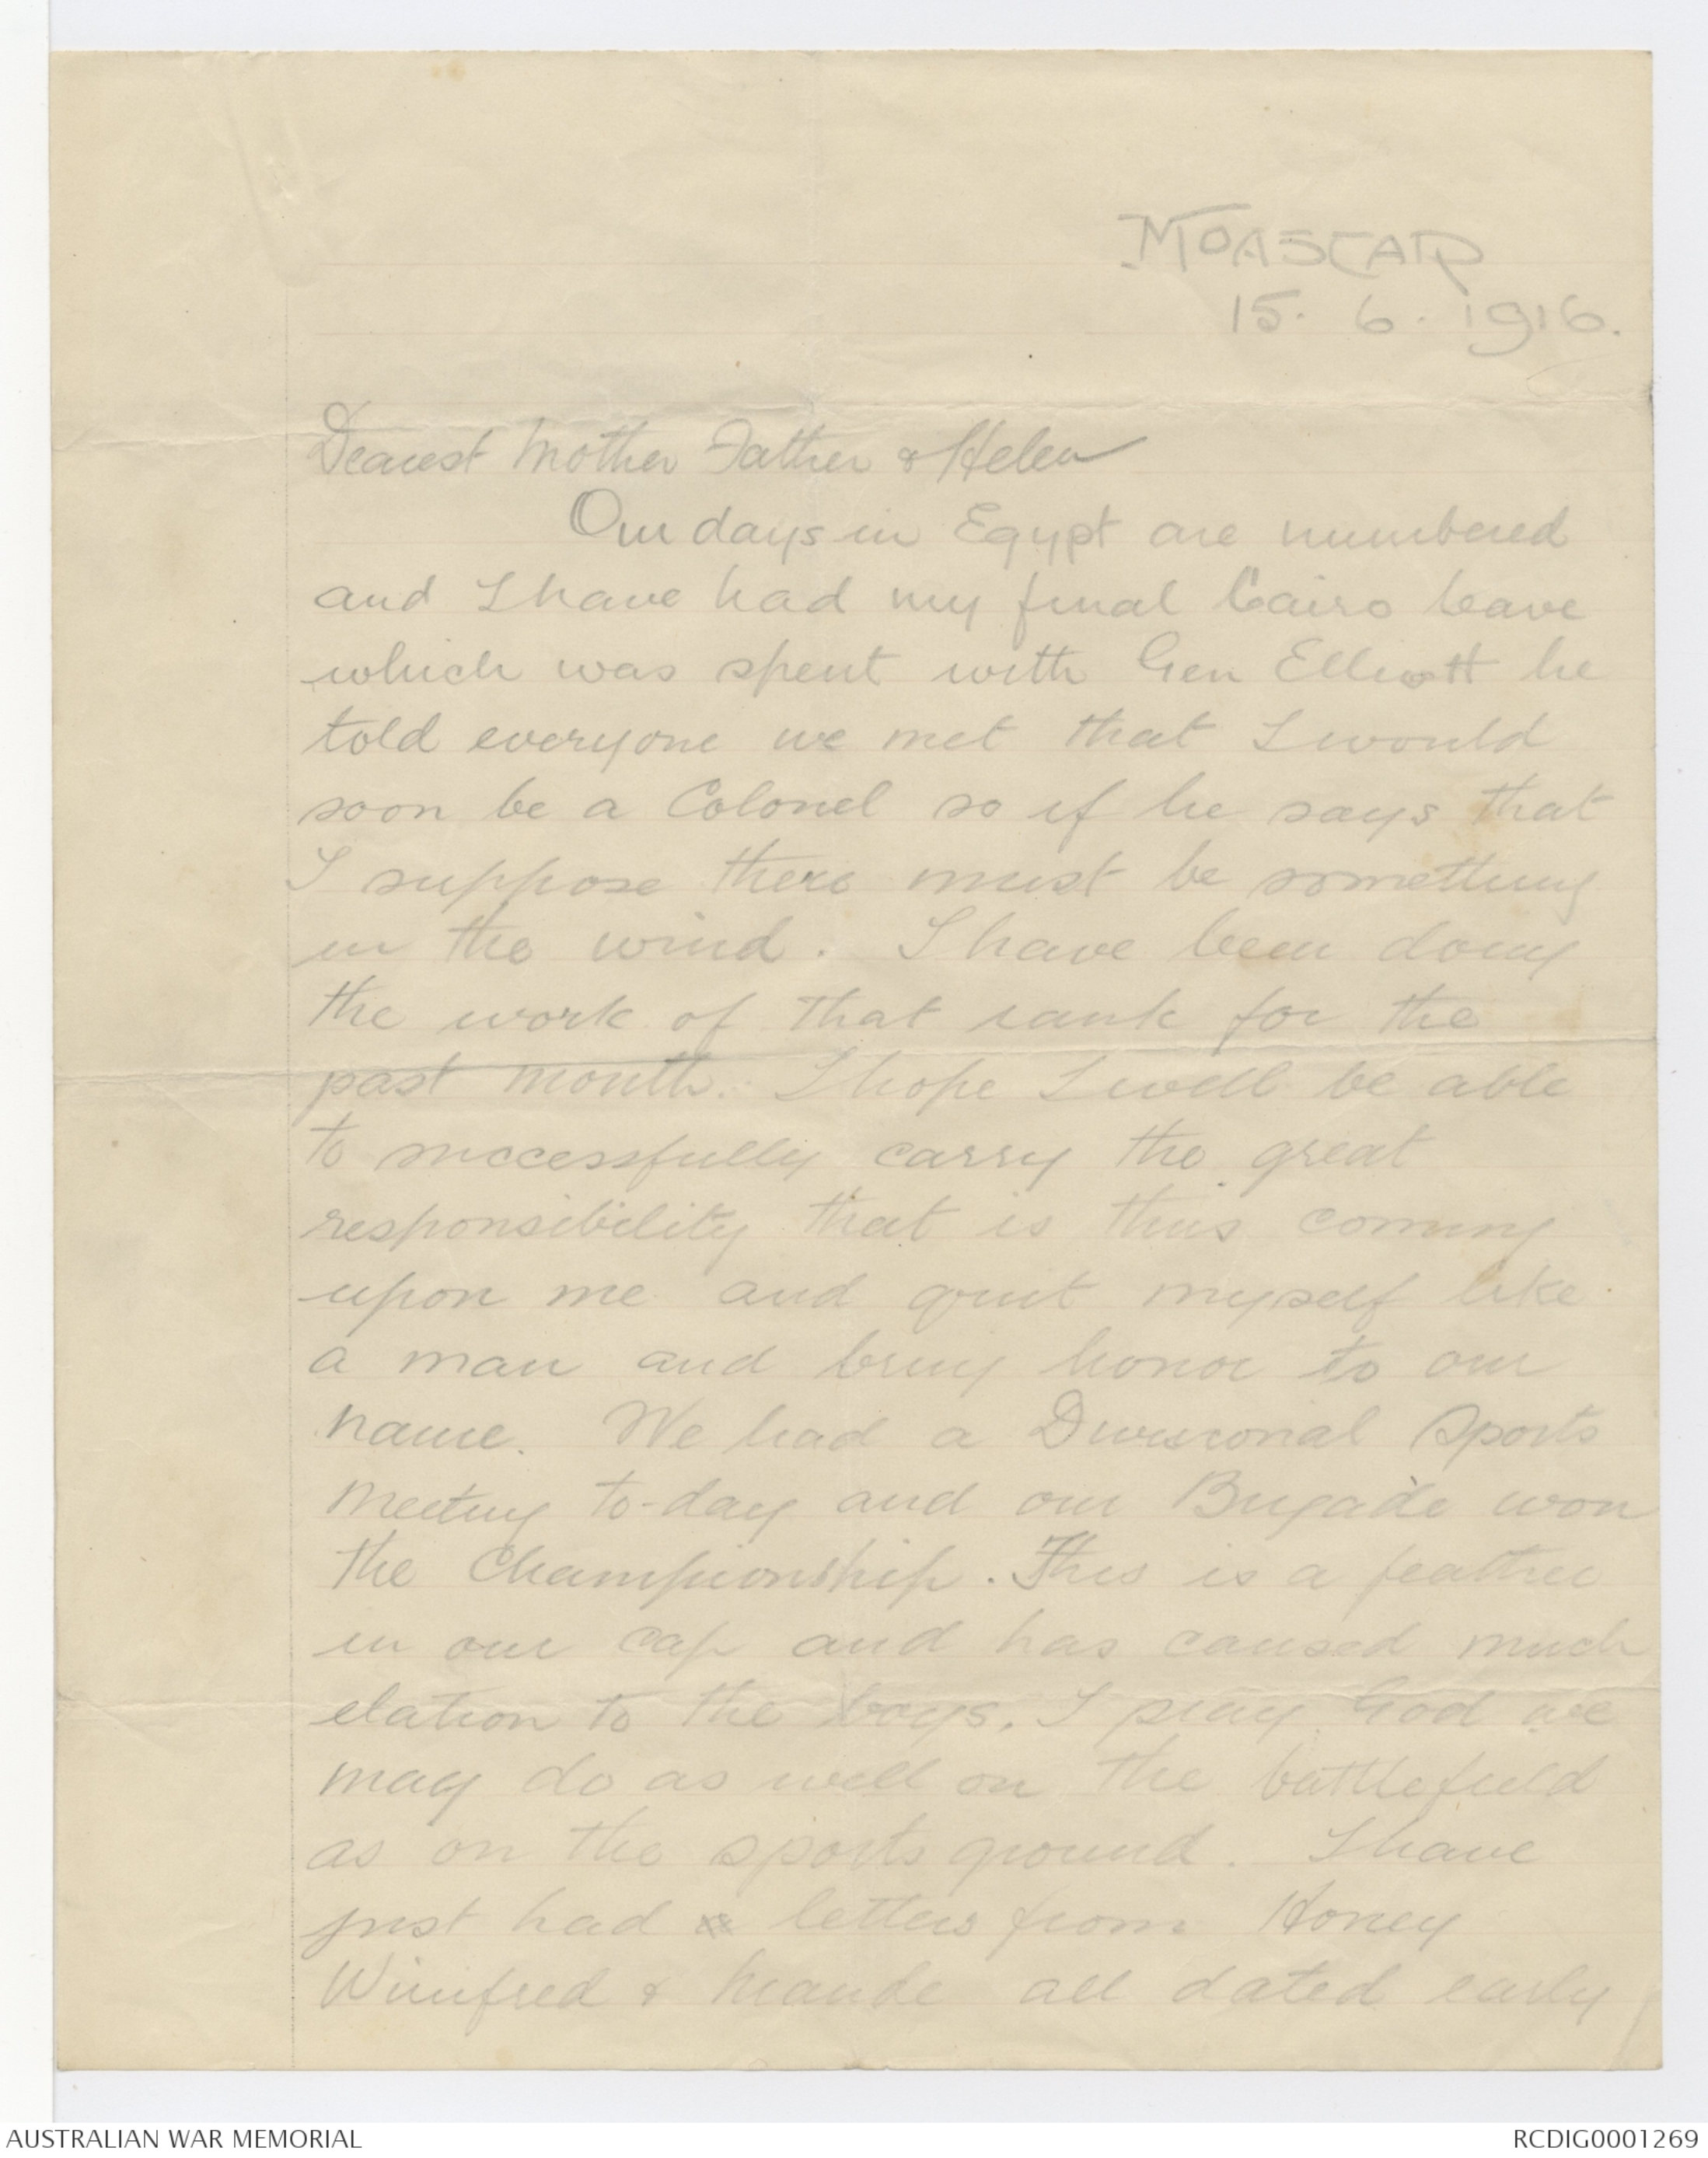 MOASCAR
15. 6. 1916.
Dearest Mother Father & Helen
Our days in Egypt are numbered
and I have had my final Cairo leave
which was spent with Gen Elliott he
told everyone we met that I would
soon be a Colonel so if he says that
I suppose there must be something
in the wind. I have been doing
the work of that rank for the
past month. I hope I will be able
to successfully carry the great
responsibility that is thus coming
upon me and quit myself like
a man and bring honor to our
name. We had a Divisional Sports
Meeting to-day and our Brigade won
the Championship. This is a feather
in our cap and has caused much
elation to the boys. I pray God we
may do as well on the battlefield
as on the sports ground. I have
just had letters from Honey
Winifred & Maude all dated early
AUSTRALIAN WAR MEMORIAL
RCDIG0001269